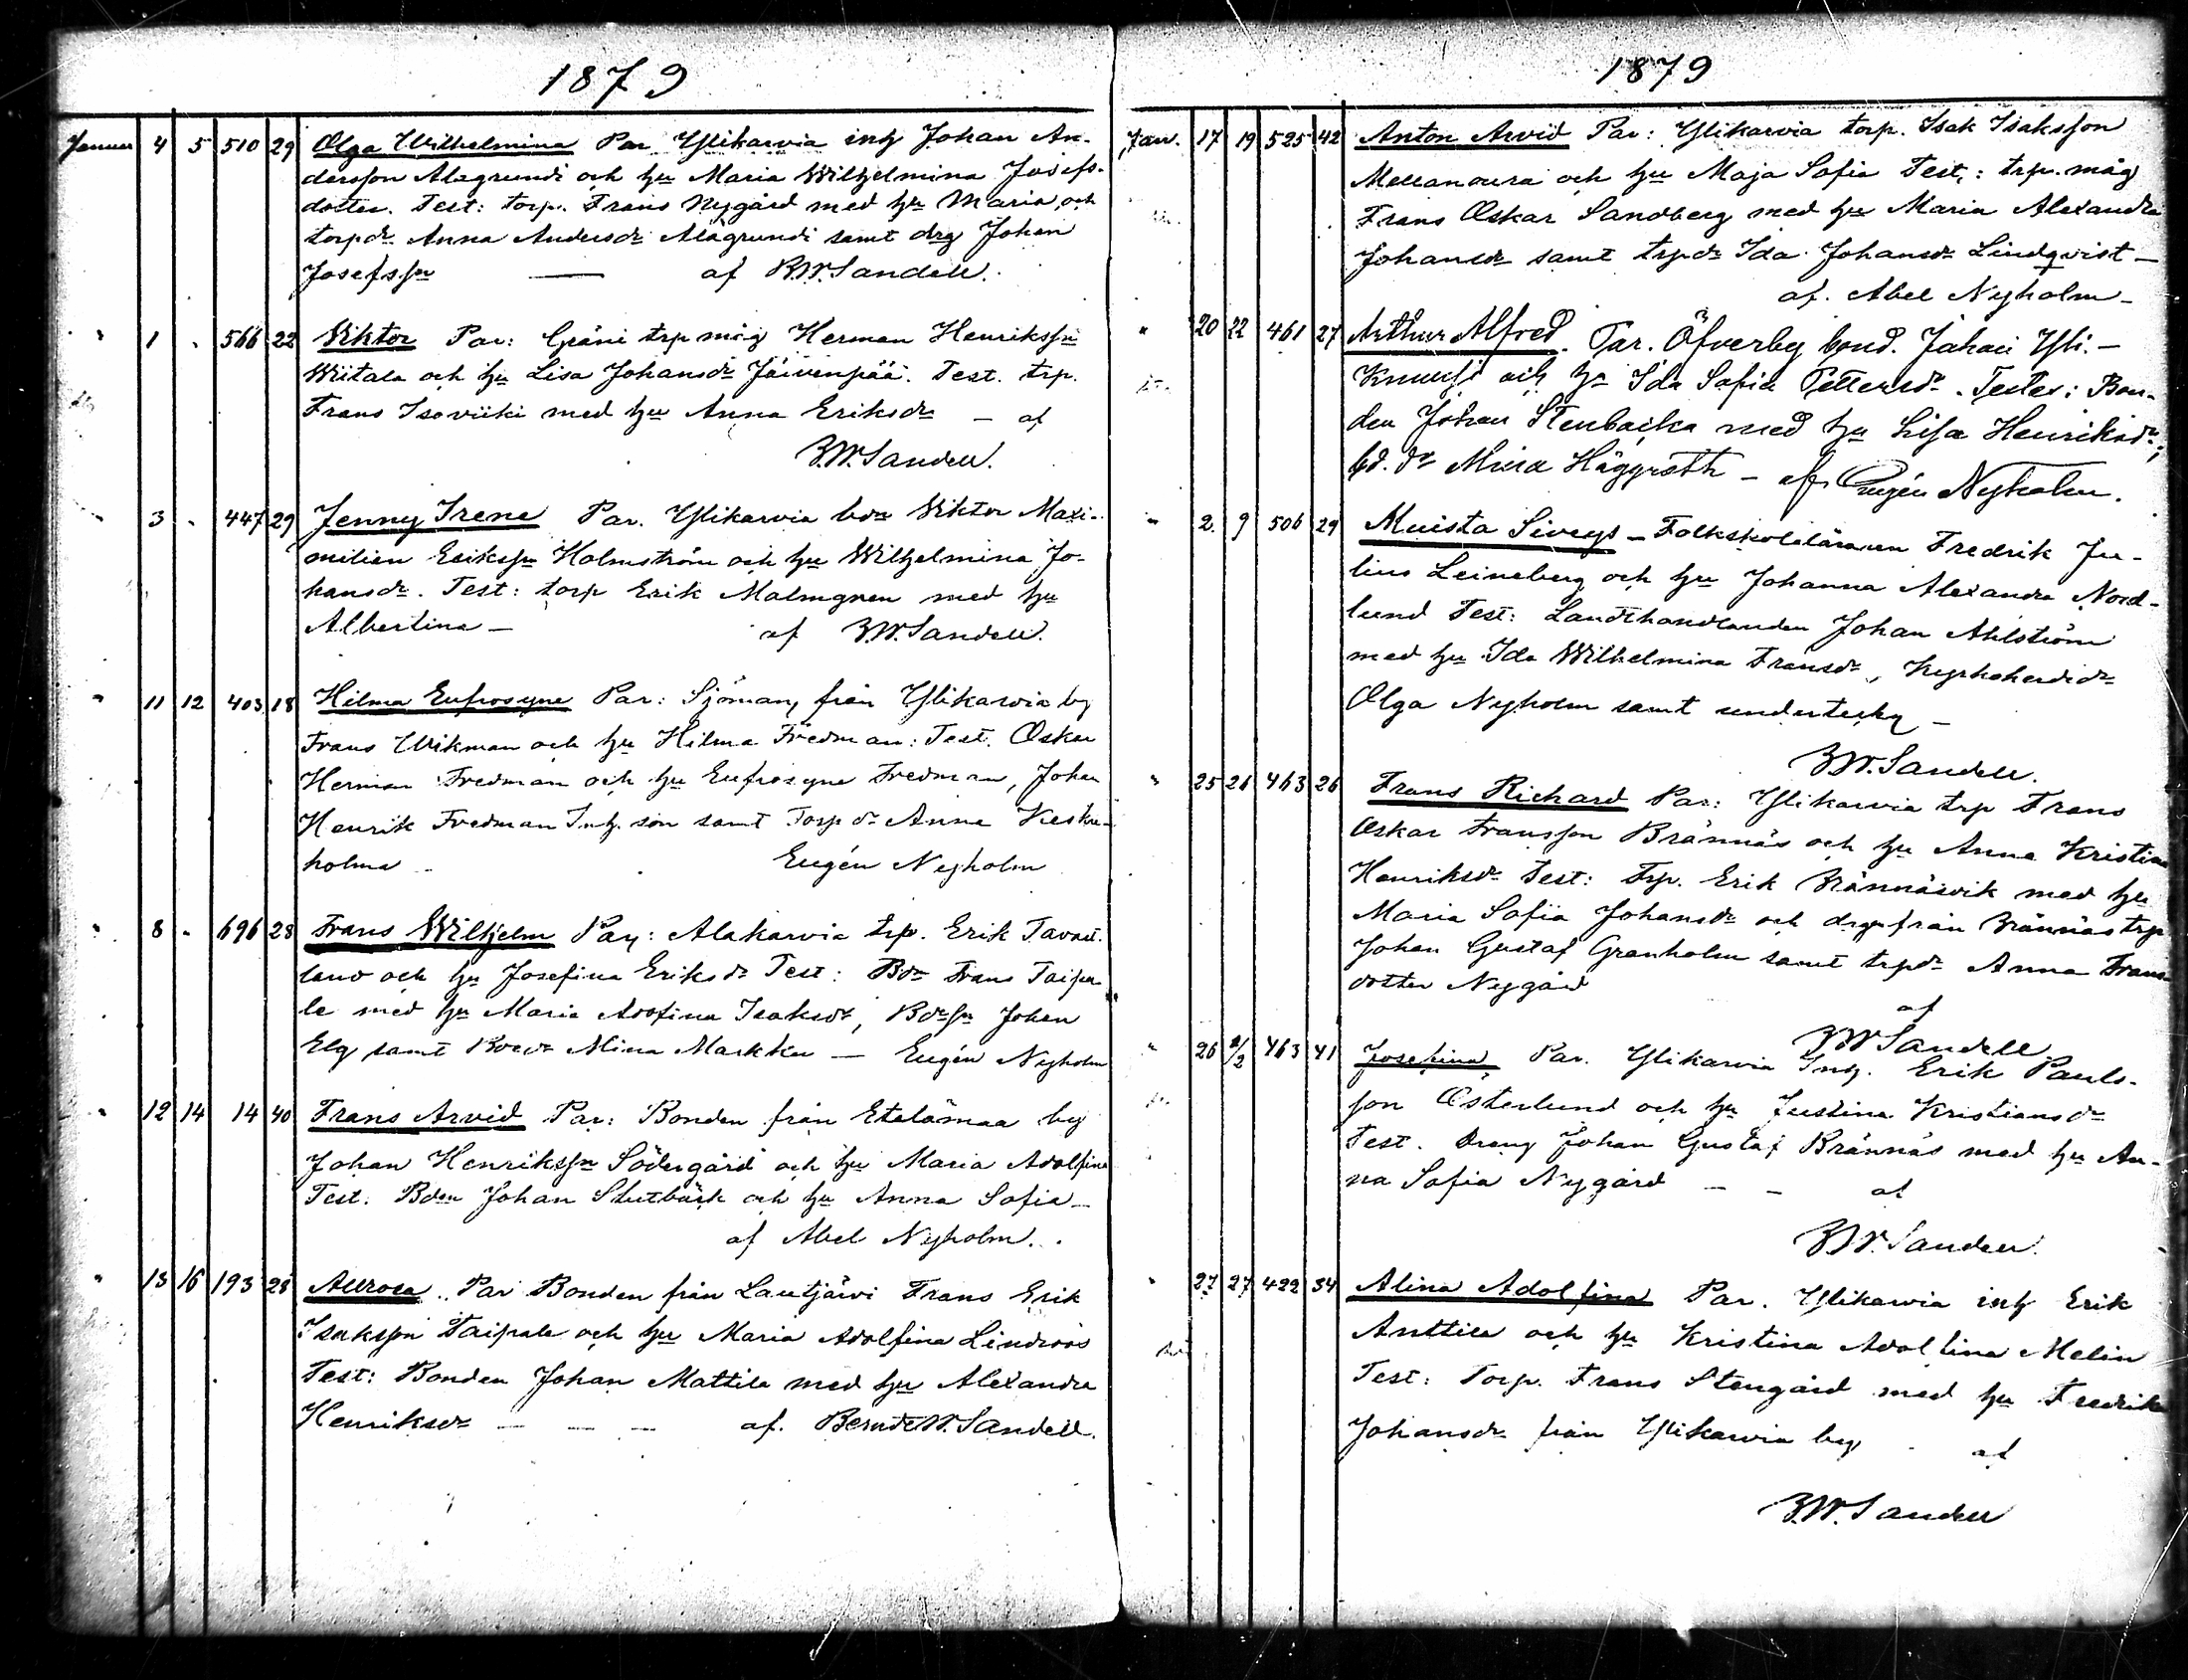 1879
Januar 4 5 510 29 Olga Wilhelmina Par Ylikarvia inh Johan An-
dersson Alagrundi och hu Maria Wilhelmina Josefs-
dotter. Test: torp. Frans Nygård med hu Maria, och
torpdr Anna Andersdr Alagrundi samt drg Johan
Josefssn — af B.W. Sandell.
" 1 " 566 22 Viktor Par: trp måg Herman Henrikssn
Wiitala och hu Lisa Johansdr Järvenpää. Test. trp.
Frans Isoviiki med hu Anna Eriksdr — af
B.W. Sandell.
" 3 " 447 29 Jenny Irene Par. Ylikarvia bdn Viktor Maxi-
milian Erikssn Holmström och hu Wilhelmina Jo-
hansdr. Test: torp Erik Malmgren med hu
Albertina — af B.W. Sandell.
" 11 12 403 18 Hilma Eufrosyne Par: Sjöman från Ylikarvia by
Frans Wikman och hu Hilma Fredman: Test. Oskar
Herman Fredman och hu Eufrosyne Fredman, Johan
Henrik Fredman Inh. son samt Torp dr Anna
holma Eugén Nyholm
" 8 " 696 28 Frans Wilhjelm Par: Alakarvia trp. Erik
och hu Josefina Eriksdr Test: Bdn Frans Taipa-
le med hu Maria Adofina Isaksdr, Bdssn Johan
Elg samt Mina Markku — Eugén Nyholm
" 12 14 14 40 Frans Arvid Par: Bonden från Etelämaa by
Johan Henrikssn Södergård och hu Maria Adolfina
Test. Bden Johan Slutbäck och hu Anna Sofia —
af Abel Nyholm.
" 13 16 193 28 Aurora. Par Bonden från Lautjärvi Frans Erik
Isaksson Taipale och hu Maria Adolfina Lindroos
Test: Bonden Johan Mattila med hu Alexandra
Henriksdr — — — af. Bernd W. Sandell.
1879
Jan. 17 19 525 42 Anton Arvid Par: Ylikarvia torp. Isak Isaksson
Mellanoura och hu Maja Sofia Test,: trp. måg
Frans Oskar Sandberg med hu Maria Alexandra
Johansdr samt trpdr Ida Johansdr Lindqvist —
af. Abel Nyholm —
" 20 22 461 27 Arthur Alfred. Par. Öfverby bond. Johan Yli-
Knuusi och hu Ida Sofia Pettersdr. Testes: Bon-
den Johan Stenbacka med hu Lisa Henriksdr,
bd. dr Mina Häggroth — af Eugén Nyholm.
" 2. 9 506 29 Muista Siveys — Folkskoleläraren Fredrik Ju-
lius Leineberg och hu Johanna Alexandra Nord-
lund Test: Landthandlanden Johan Ahlström
med hu Ida Wilhelmina Fransdr, Kyrkoherdedr
Olga Nyholm samt underteckn —
B.W. Sandell.
" 25 26 463 26 Frans Richard Par: Ylikarvia trp Frans
Oskar Fransson Brännäs och hu Anna Kristina
Henriksdr Test: Trp. Erik Brännäsvik med hu
Maria Sofia Johansdr och drgn från Brännäs trp
Johan Gustaf Granholm samt trpdr Anna Frans-
dotter Nygård
af
B.W. Sandell
" 26 2/2 463 41 Josefina, Par. Ylikarvia Inh. Erik Pauls-
son Österlund och hu Justina Kristiansdr
Test. Dreng Johan Gustaf Brännäs med hu An-
na Sofia Nygård — — af
B.W. Sandell.
" 27 27 422 34 Alina Adolfina Par. Ylikarvia inh Erik
Anttila och hu Kristina Adolfina Melin
Test: Torp. Frans Stengård med hu Fredrika
Johansdr från Ylikarvia by af
B.W. Sandell